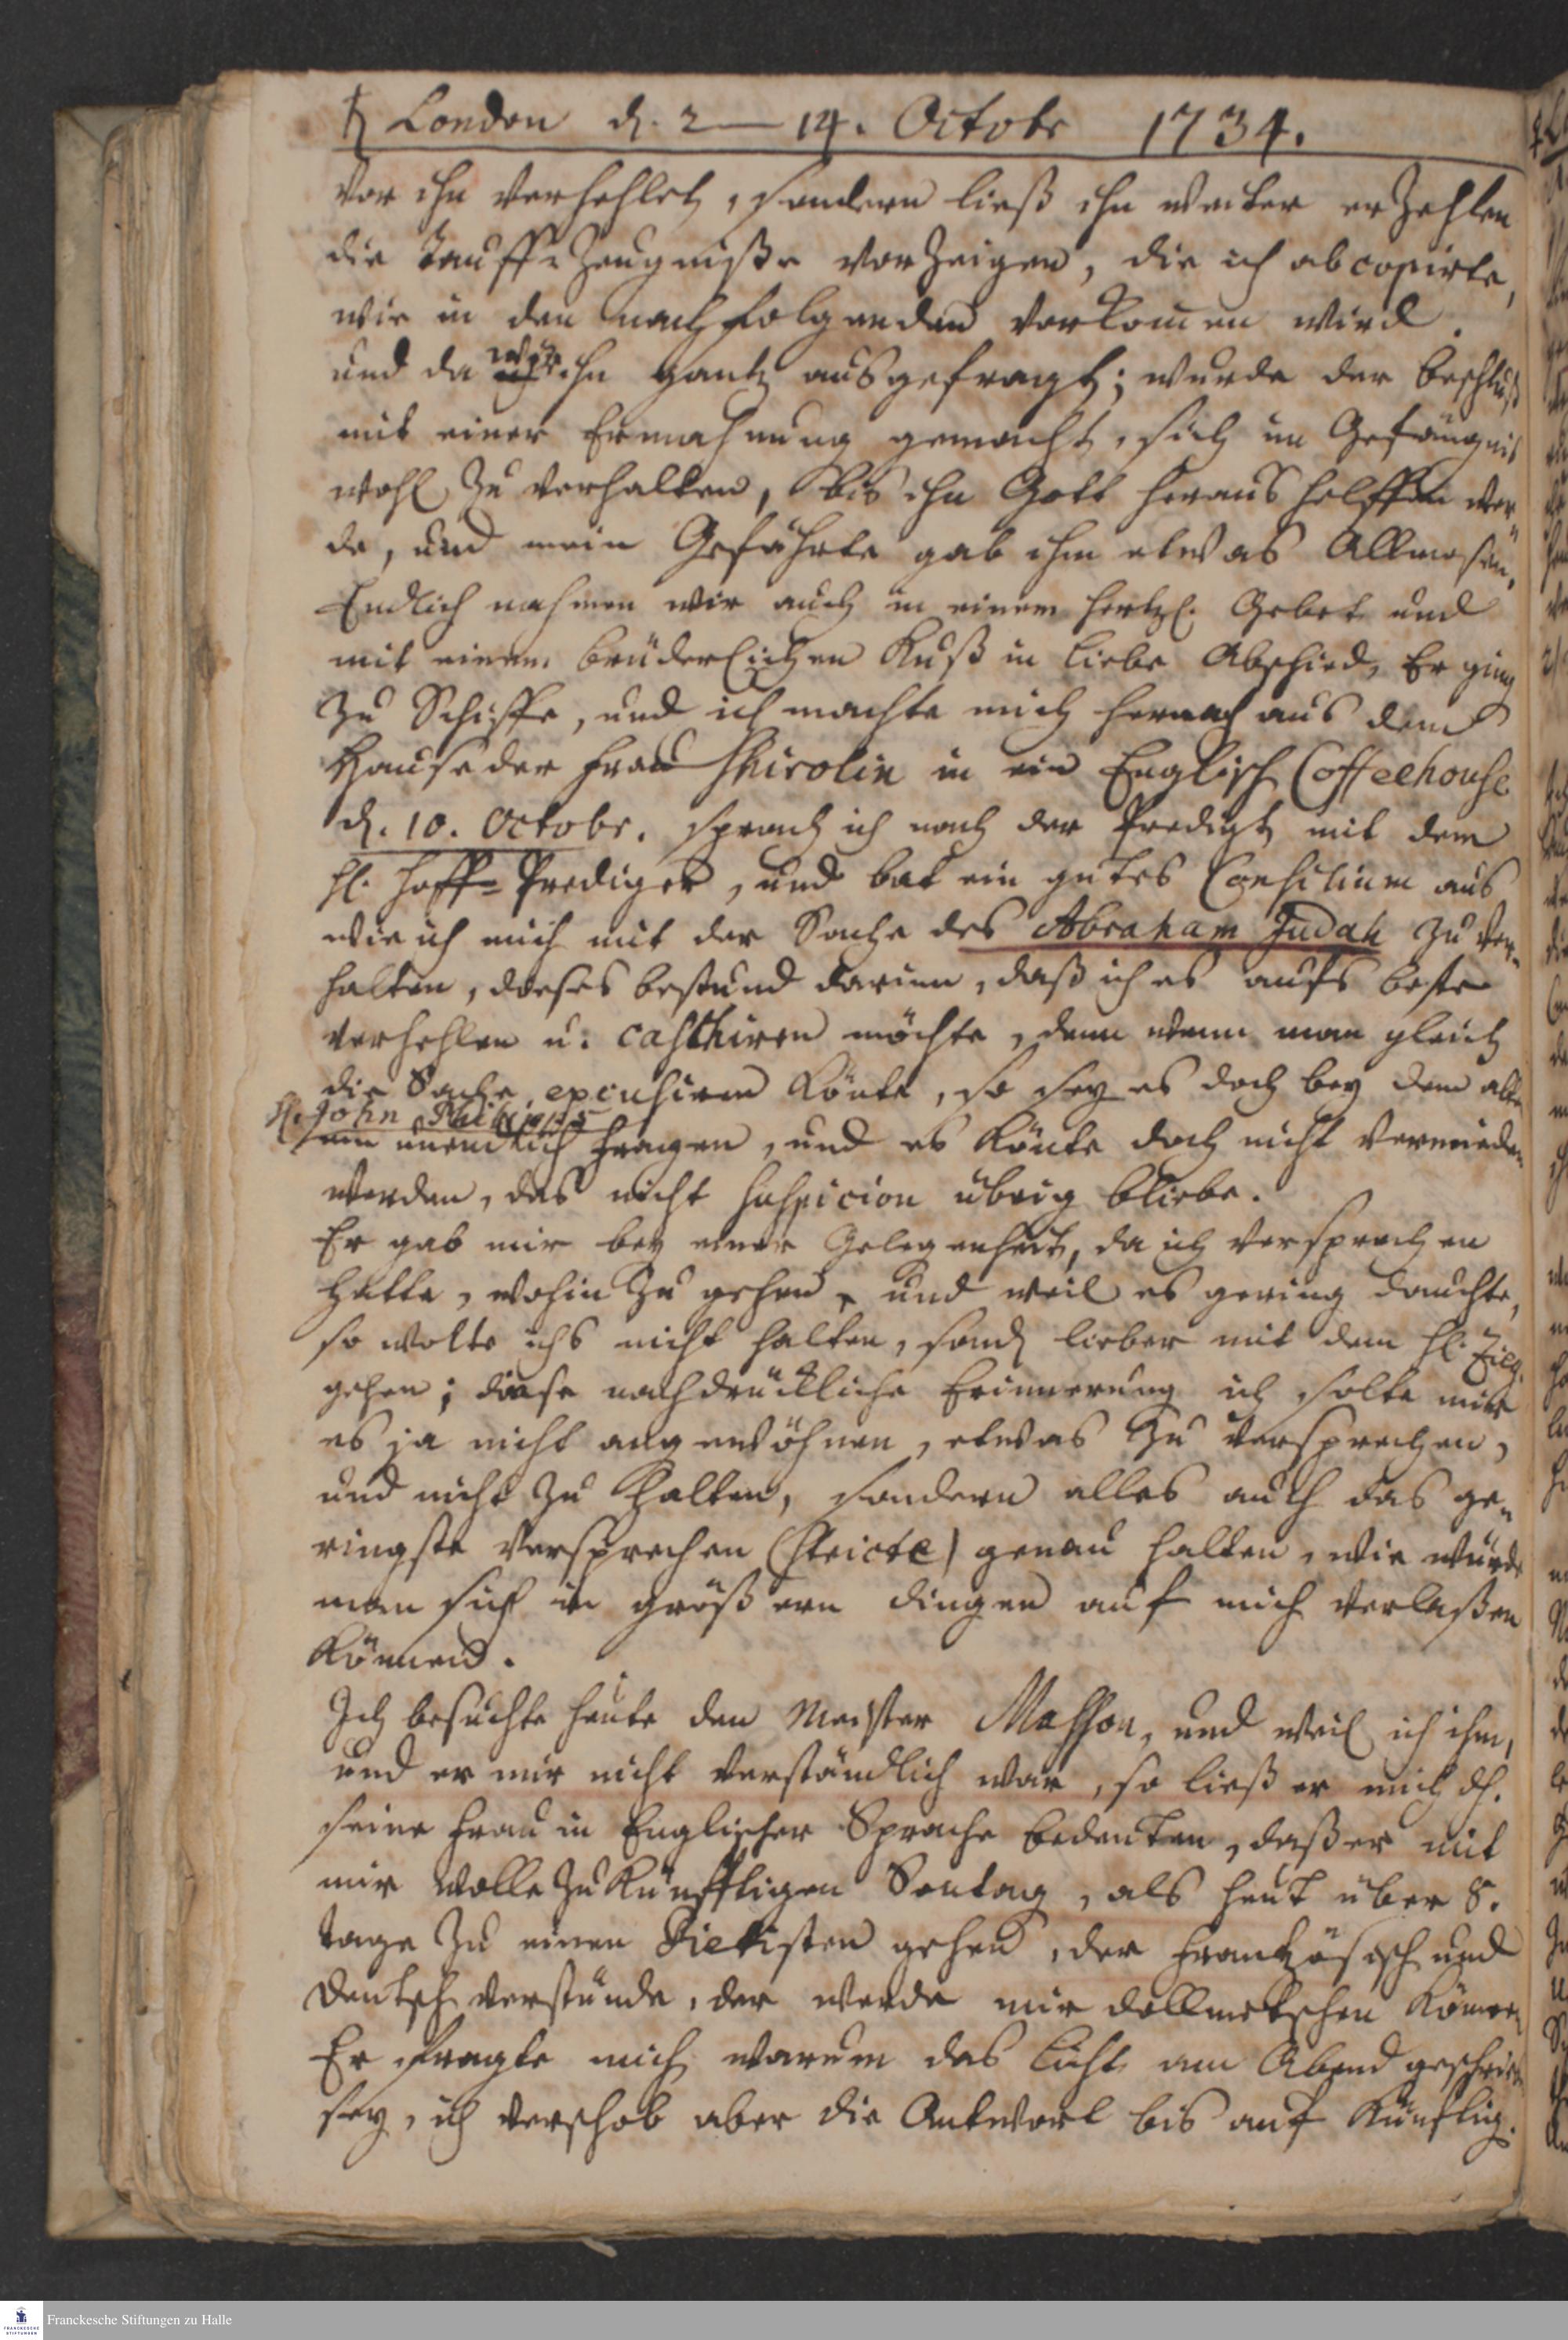 London d. 2 — 14. Octobr 1734.
vor ihn verhehlet, sondern ließ ihn weiter erzehlen
die Tauff-Zeugniße vorzeigen, die ich abcopirte,
wie in den nachfolgenden vorkom̄en wird.
und da wir ihn gantz ausgefragt; wurde der Beschluß
mit einer Ermahnung gemacht, sich im Gefängnis
wohl zu verhalten, bis ihn Gott heraus helffen wer-
de, und mein Gefährte gab ihm etwas Allmosen.
Endlich nahmen wir auch in einem hertzl. Gebet und
mit einem brüderlichen Kuß in Liebe Abschied, Er ging
zu Schiffe, und ich machte mich hernach aus dem
Hause der Frau Skirolin in ein Englisch Coffeehouse
d. 10. Octobr. sprach ich nach der Predigt mit dem
H. Hoff-Prediger, und bat ein gutes Consilium aus
wie ich mich mit der Sache des Abraham Judah zu ver-
halten, dieses bestund darinn, daß ich es aufs beste
verhehlen u: möchte, denn wenn man gleich
die Sache excusiren könte, so sey es doch bey dem alle
H. John Philipps
unendlich fragen, und es könte doch nicht vermieden
werden, das nicht suspicion übrig bliebe.
Er gab mir bey einer Gelegenheit, da ich versprochen
hatte, wohin zu gehen, und weil es gering dauchte,
so wolte ichs nicht halten, sond. lieber mit dem H. Zieg.
gehen; diese nachdrückliche Erinnerung ich solte mir
es ja nicht angewöhnen, etwas zu versprechen,
und nicht zu halten, sondern alles auch das ge-
ringste Versprechen (stricte) genau halten, wie würde
man sich in größern dingen auf mich verlaßen
können.
Ich besuchte heute den Meister Masson, und weil ich ihm,
und er mir nicht verständlich war, so ließ er mich d.
seine Frau in Englischer Sprache bedeuten, daß er mit
mir wolle zukünfftigen Sontag, als heut über 8.
tage zu einen Pietisten gehen, der Frantzösisch und
Deutsch verstünde, der werde mir dollmetschen können
Er fragte mich warum das Licht am Abend
sey, ich verschob aber die Antwort bis auf künftig.
FRANCKESCHE STIFTUNGEN
Franckesche Stiftungen zu Halle